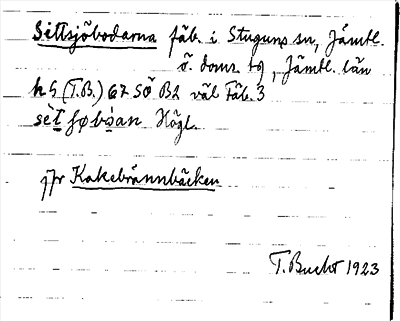 Settsjöbodarna fäb. i Stuguns sn, Jämtl.
ö. doms. tg, Jämtl. län
h 5 (T.B.) 67 SÖ B2 väl Fäb. 3
Högl.
jfr Kakebrännbäcken
T. Bucht 1923